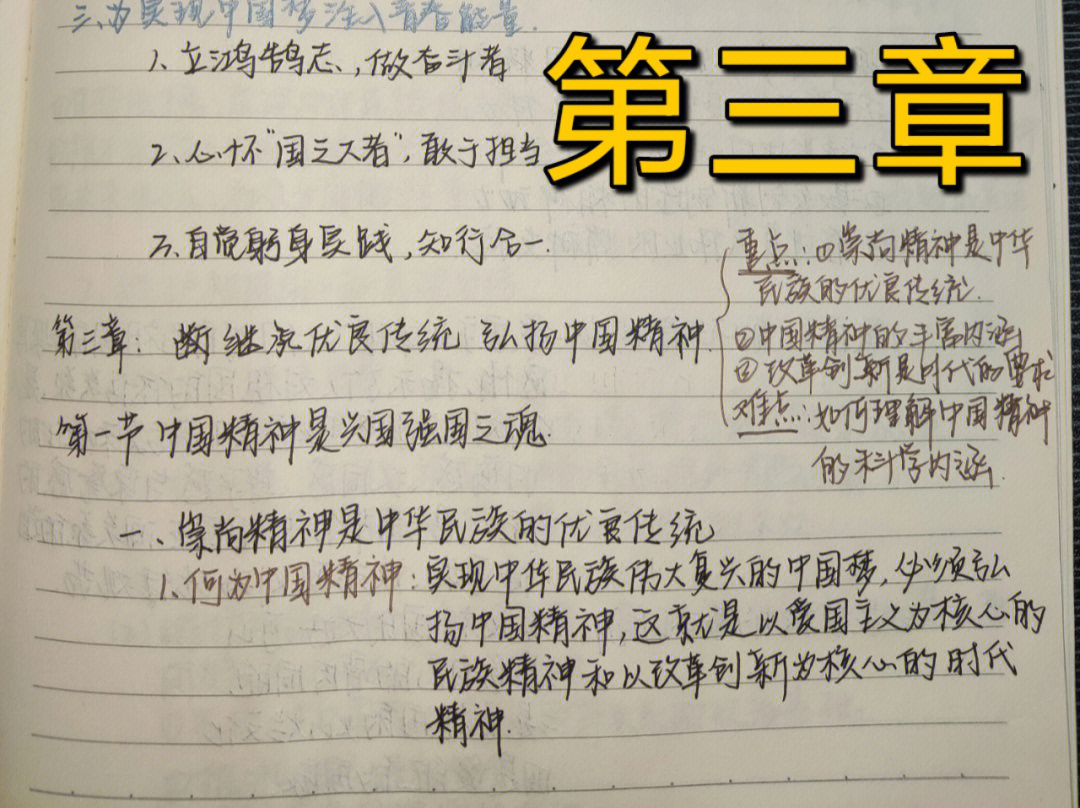 三、为实现中国梦注入青春能量.
第三章
1、立鸿鹄志，做奋斗者
2、心怀"国之大者"，敢于担当
3、自觉躬身实践，知行合一.
重点：①崇尚精神是中华
民族的优良传统.
②中国精神的丰富内涵
③改革创新是时代的要求
难点：如何理解中国精神
的科学内涵.
第三章：继承优良传统 弘扬中国精神.
第一节 中国精神是兴国强国之魂.
一、崇尚精神是中华民族的优良传统
1.何为中国精神：实现中华民族伟大复兴的中国梦，必须弘
扬中国精神，这就是以爱国主义为核心的
民族精神和以改革创新为核心的时代
精神.